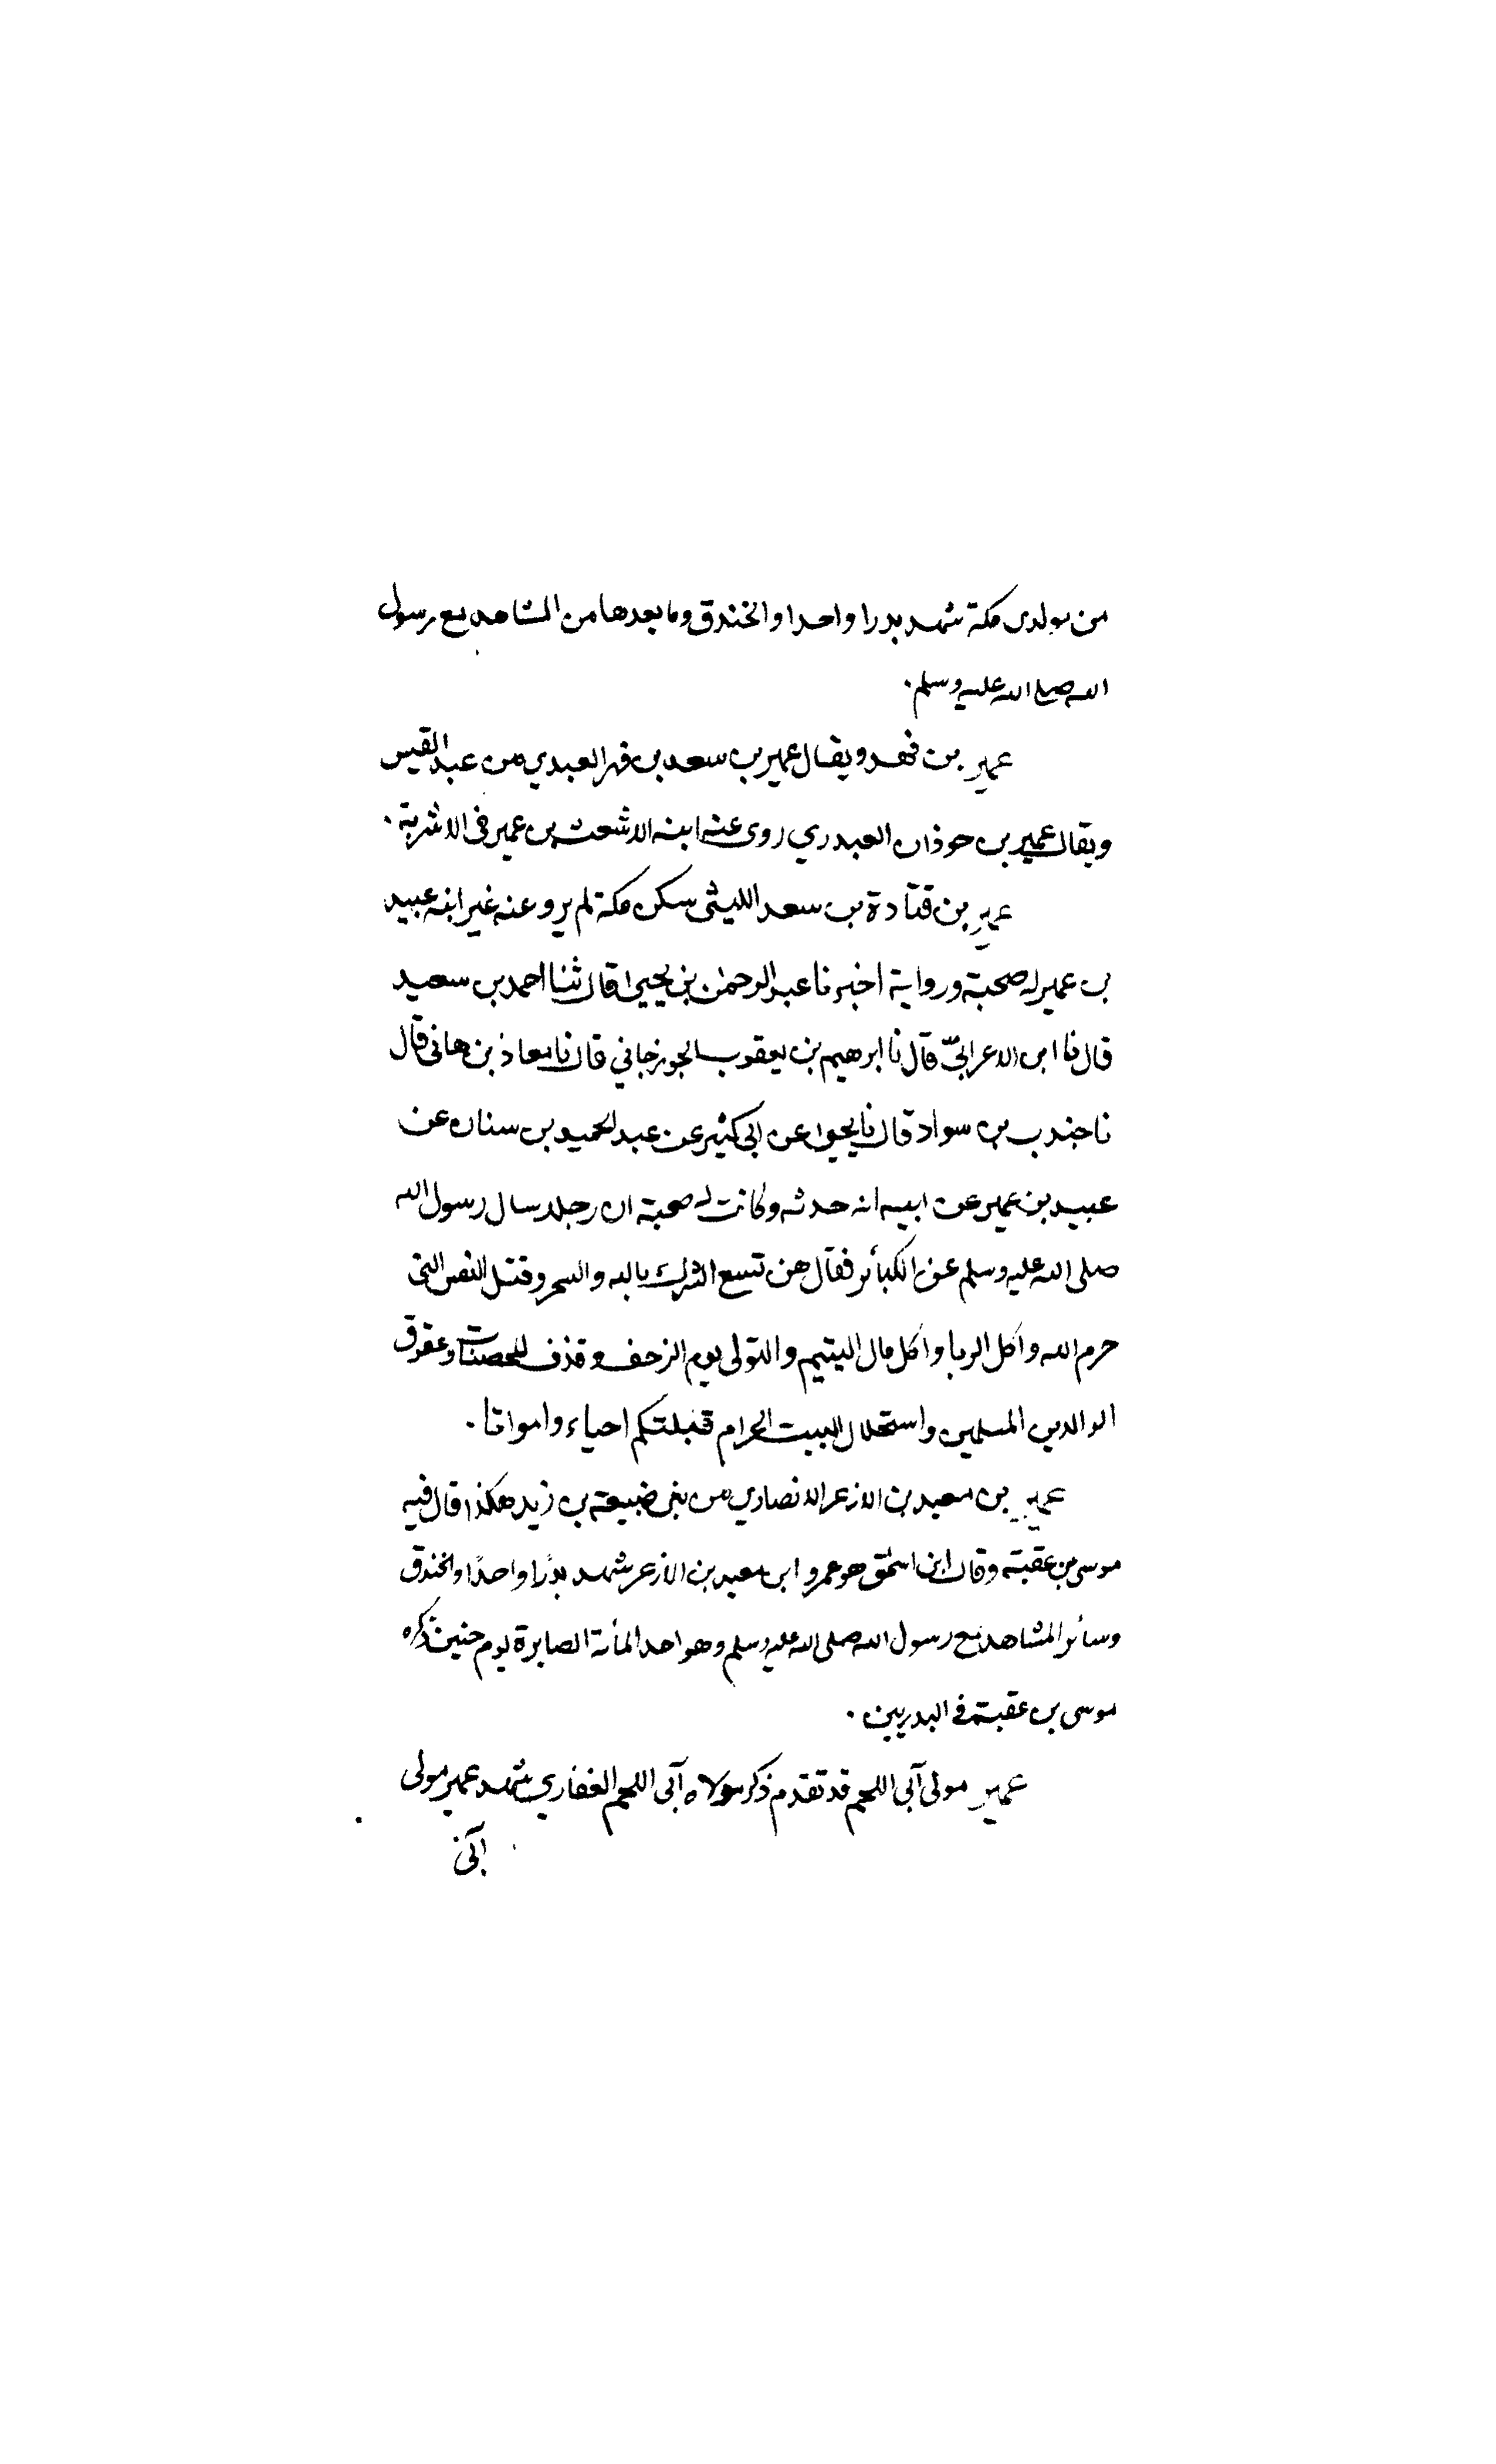 من مولدى مكة شهد بدرا واحدا والخندق وما بعدها من المشاهد مع رسول
الله صلى الله عليه وسلم.
عمير بن فهد ويقال عمير بن سعد بن فهر العبدي من عبد القيس
ويقال عمير بن جوذان العبدري روى عنه ابنه الاشعث بن عمير فى الاشربة.
عمير بن قتادة بن سعد الليثى سكن مكة لم يرو عنه غير ابنه عبيد
بن عمير له صحبة ورواية اخبرنا عبد الرحمٰن بن يحيىٰ قال ثنا احمد بن سعيد
قال نا ابن الاعرابىّ قال نا ابرهيم بن يعقوب الجوزجاني قال نا معاذ بن هانى قال
نا جندب بن سواد قال نا يحيىٰ عن ابى كثير عن عبد الحميد بن سنان عن
عبيد بن عمير عن ابيه انه حدثه وكانت له صحبة ان رجلا سال رسول الله
صلى الله عليه وسلم عن الكبأئر فقال هن تسع الشرك بالله والسحر وقتل النفس التى
حرم الله واكل الربا واكل مال اليتيم والتولى يوم الزحف وقذف المحصنات وعقوق
الوالدين المسلمين واستحلال البيت الحرام قبلتكم احياء وامواتا.
عمير بن معبد بن الازعر الانصاري من بنى ضبيعة بن زيد هكذا قال فيه
موسى بن عقبة وقال ابن اسحٰق هو عمرو ابن معبد بن الازعر شهد بدرًا واحدًا والخندق
وسأئر المشاهد مع رسول الله صلى الله عليه وسلم وهو احد المأئة الصابرة يوم حنين ذكره
موسى بن عقبة فى البدريين.
عمير مولى آبى اللحم قد تقدم ذكر مولاه آبى اللحم الغفاري شهد عمير مولى
آبى